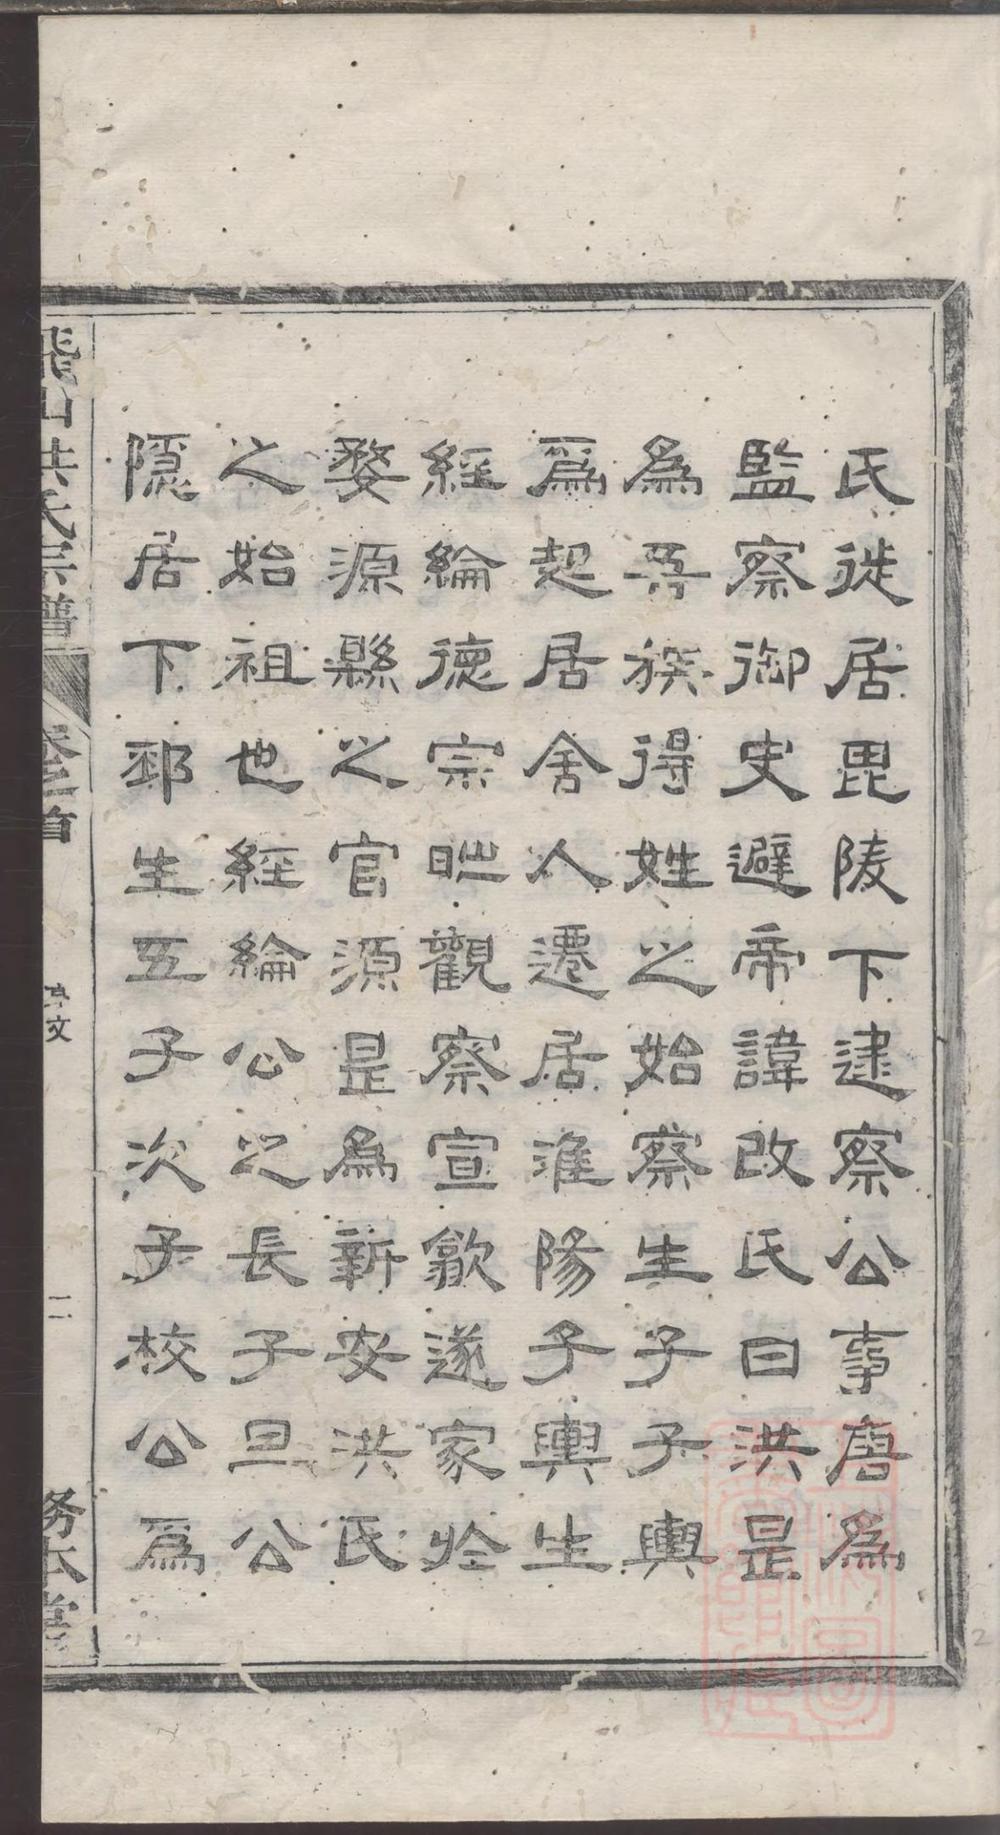 氏徙居毘陵下逮察公事唐為
監察御史避帝諱改氏曰洪是
為吾族得姓之始察生子子輿
為起居舍人遷居淮陽子輿生
經綸德宗時觀察宣歙遂家於
婺源縣之官源是為新安洪氏
之始祖也經綸公之長子旦公
隱居下邳生五子次子校公為
山洪氏宗譜
卷首
序文
二
務本堂